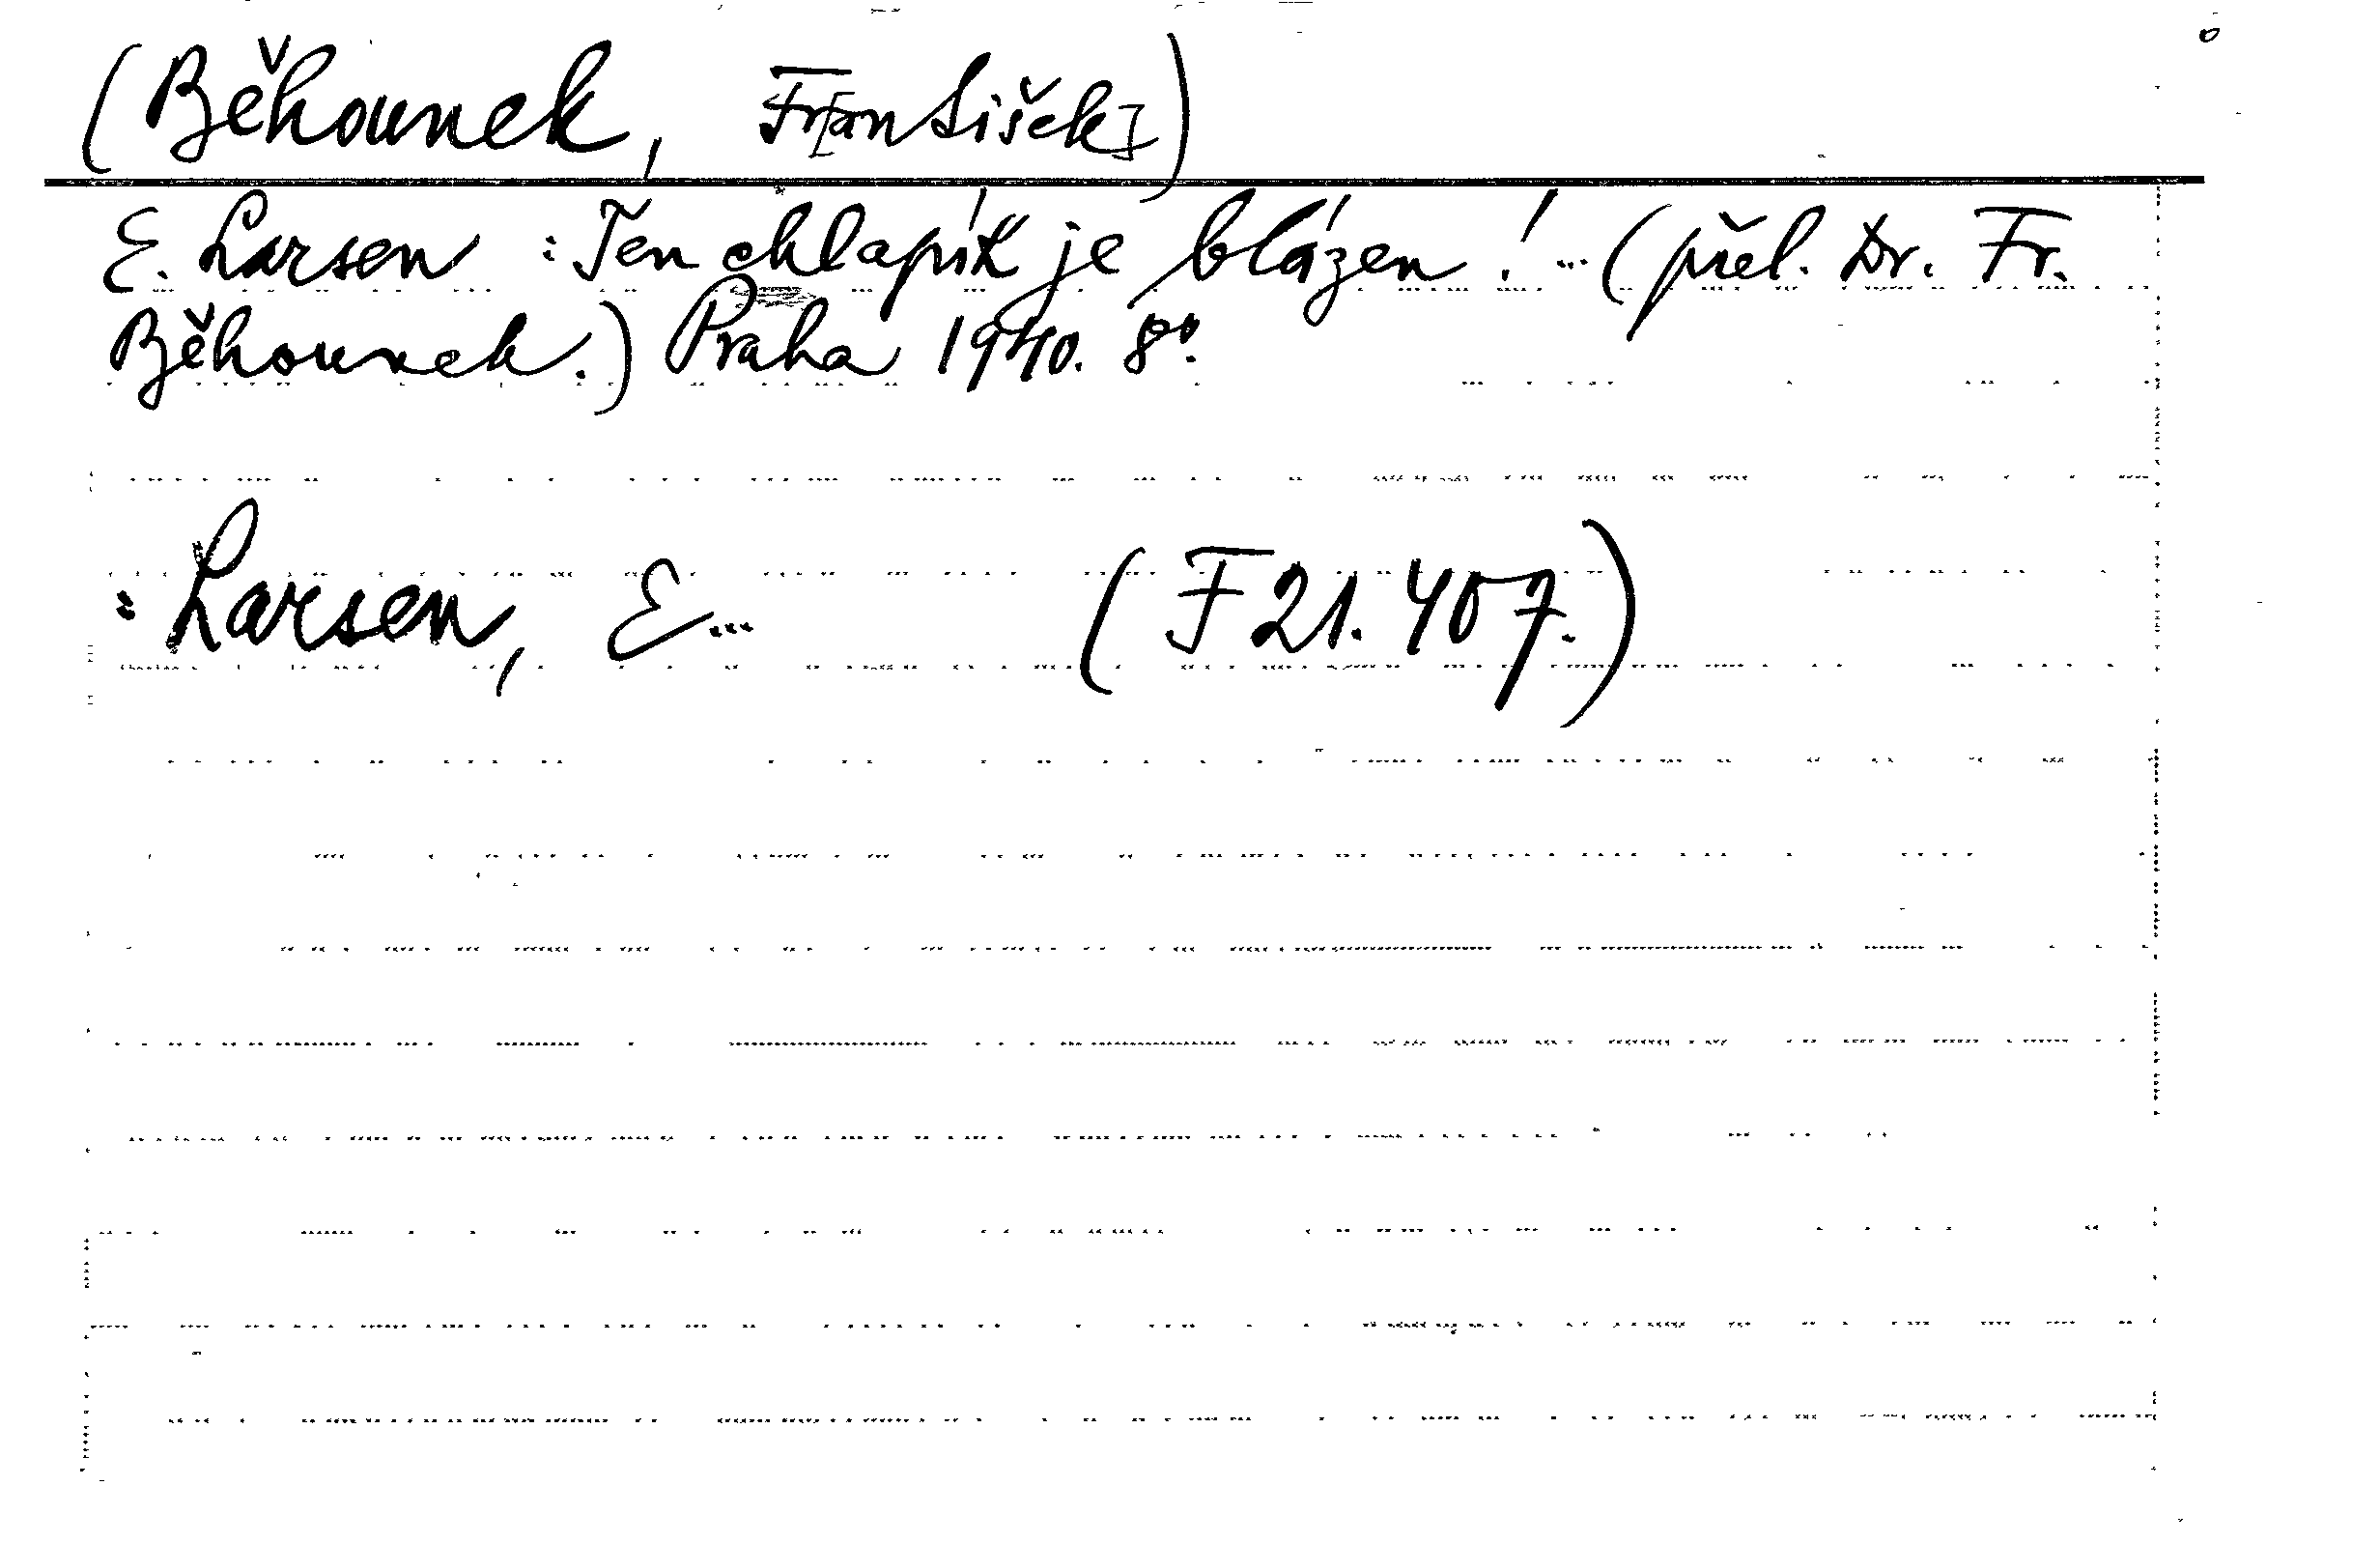 (Běhounek, Fr[antišek])
E. Larsen : Ten chlapík je blázen! … (přel. Dr. Fr.
Běhounek.) Praha 1940. 8°.
: Larsen, E… (F 21.407.)